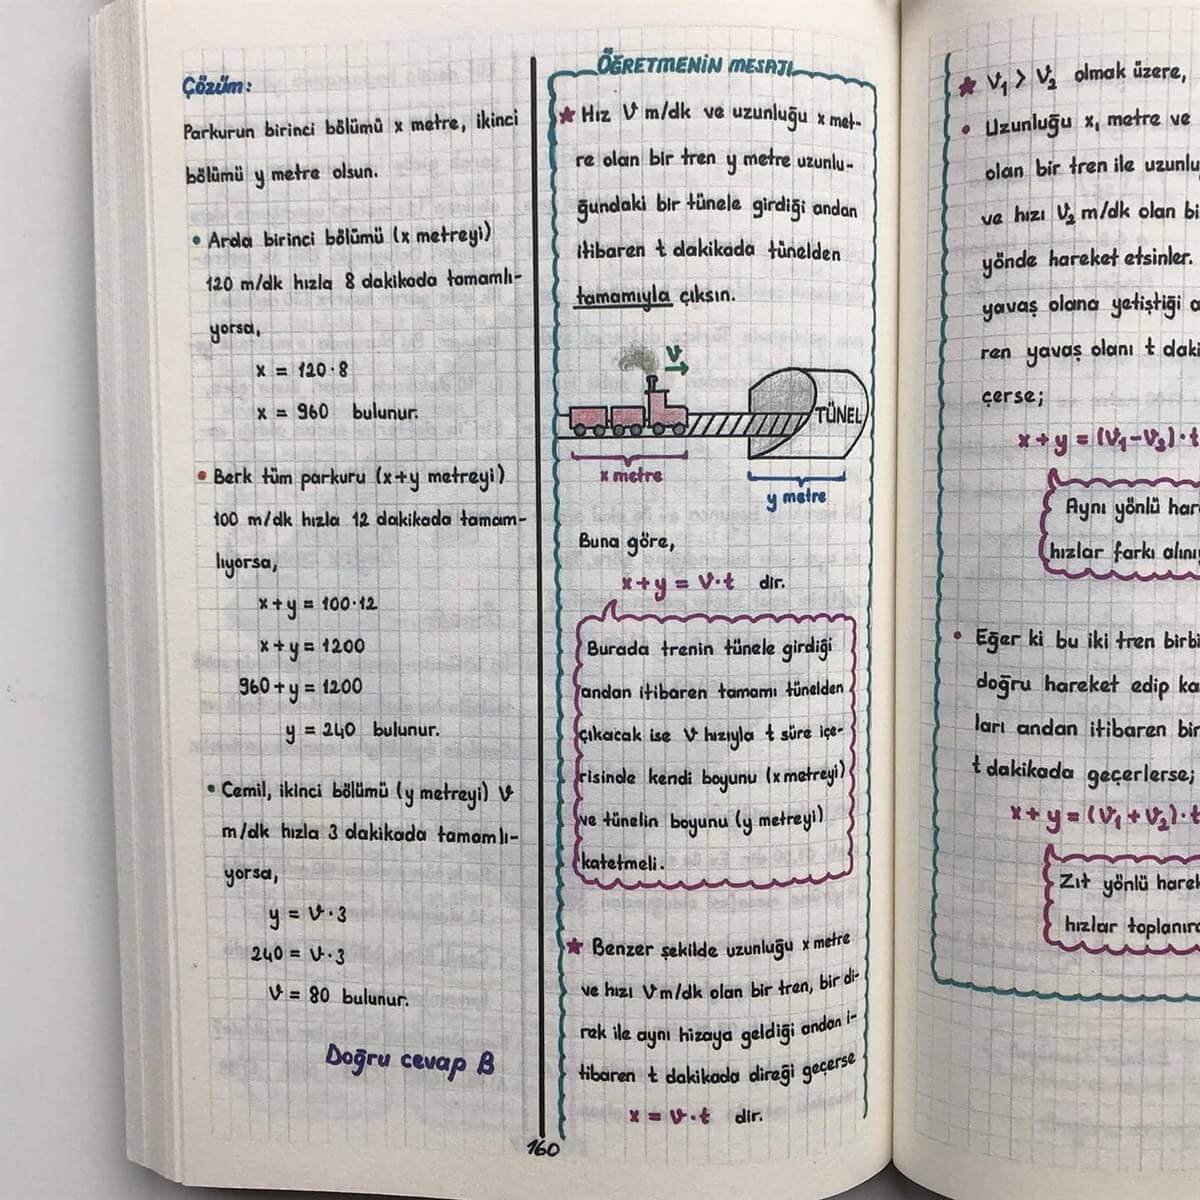 Çözüm:
Parkurun birinci bölümü x metre, ikinci
bölümü y metre olsun.
• Arda birinci bölümü (x metreyi)
120 m/dk hızla 8 dakikada tamamlı-
yorsa,
x = 120·8
x = 960 bulunur.
• Berk tüm parkuru (x+y metreyi)
100 m/dk hızla 12 dakikada tamam-
lıyorsa,
x+y = 100·12
x+y = 1200
960+y = 1200
y = 240 bulunur.
• Cemil, ikinci bölümü (y metreyi) V
m/dk hızla 3 dakikada tamamlı-
yorsa,
y = V·3
240 = V·3
V = 80 bulunur.
Doğru cevap B
ÖĞRETMENİN MESAJI
★ Hız V m/dk ve uzunluğu x met-
re olan bir tren y metre uzunlu-
ğundaki bir tünele girdiği andan
itibaren t dakikada tünelden
tamamıyla çıksın.
V
TÜNEL
x metre
y metre
Buna göre,
x+y = V·t dir.
Burada trenin tünele girdiği
andan itibaren tamamı tünelden
çıkacak ise V hızıyla t süre içe-
risinde kendi boyunu (x metreyi)
ve tünelin boyunu (y metreyi)
katetmeli.
★ Benzer şekilde uzunluğu x metre
ve hızı V m/dk olan bir tren, bir di-
rek ile aynı hizaya geldiği andan i-
tibaren t dakikada direği geçerse
x = V·t dir.
160
★ V₁ > V₂ olmak üzere,
• Uzunluğu x, metre ve
olan bir tren ile uzunlu
ve hızı V₂ m/dk olan bi
yönde hareket etsinler.
yavaş olana yetiştiği a
ren yavaş olanı t daki
çerse;
x+y = (V₁-V₂)·t
Aynı yönlü har
hızlar farkı alını
• Eğer ki bu iki tren birbi
doğru hareket edip ka
ları andan itibaren bir
t dakikada geçerlerse;
x+y = (V₁+V₂)·t
Zıt yönlü harek
hızlar toplanır